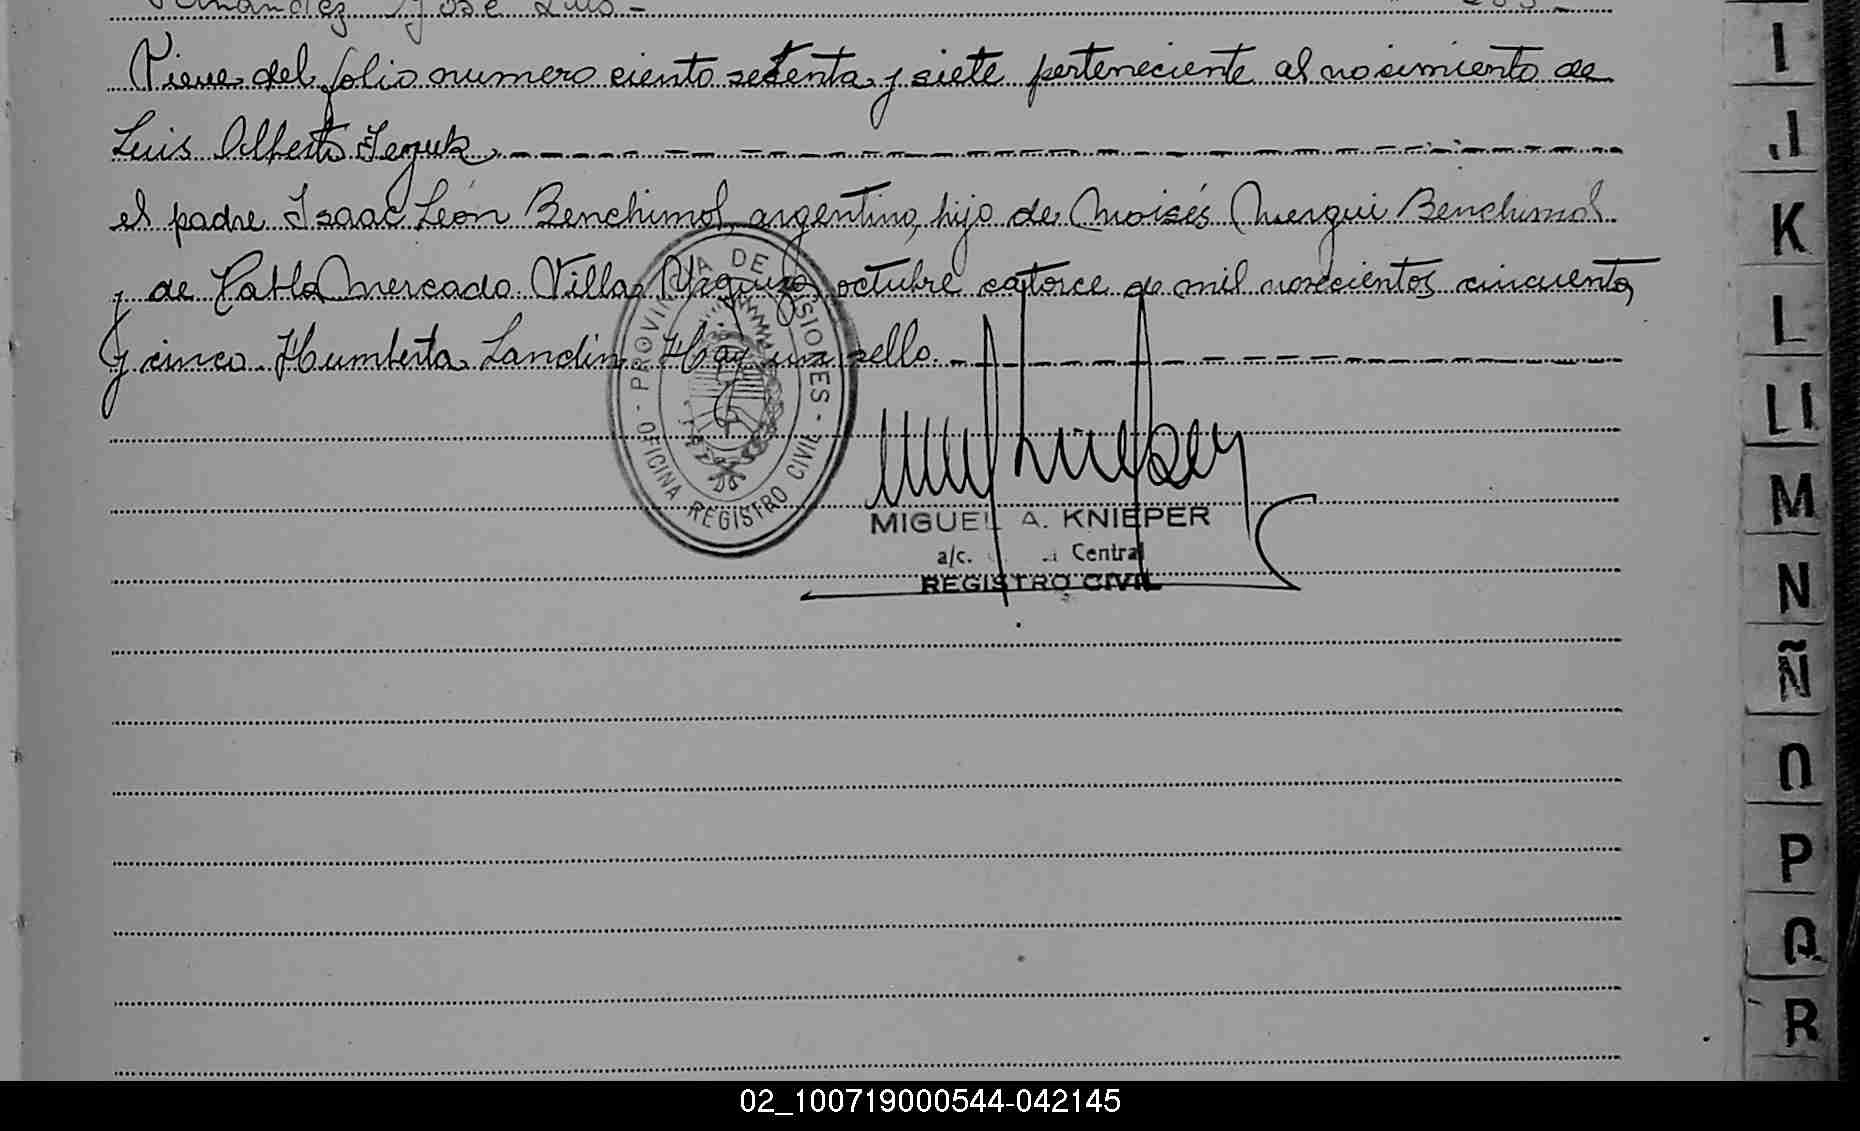 Fernandez José Luis -
Viene del folio numero ciento setenta y siete perteneciente al nacimiento de
Luis Alberto
el padre Isaac León Benchimol, argentino, hijo de Moisés Mergui Benchimol
y de Mercado. Villa Urquiza, octubre catorce de mil novecientos cincuenta
y cinco. Humberto Landin. Hay un sello.
PROVI A DE MISIONES
- OFICINA REGISTRO CIVIL -
MIGUEL A. KNIEPER
a/c. Central
REGISTRO CIVIL
I
J
K
L
LL
M
N
Ñ
O
P
Q
R
02_100719000544-042145